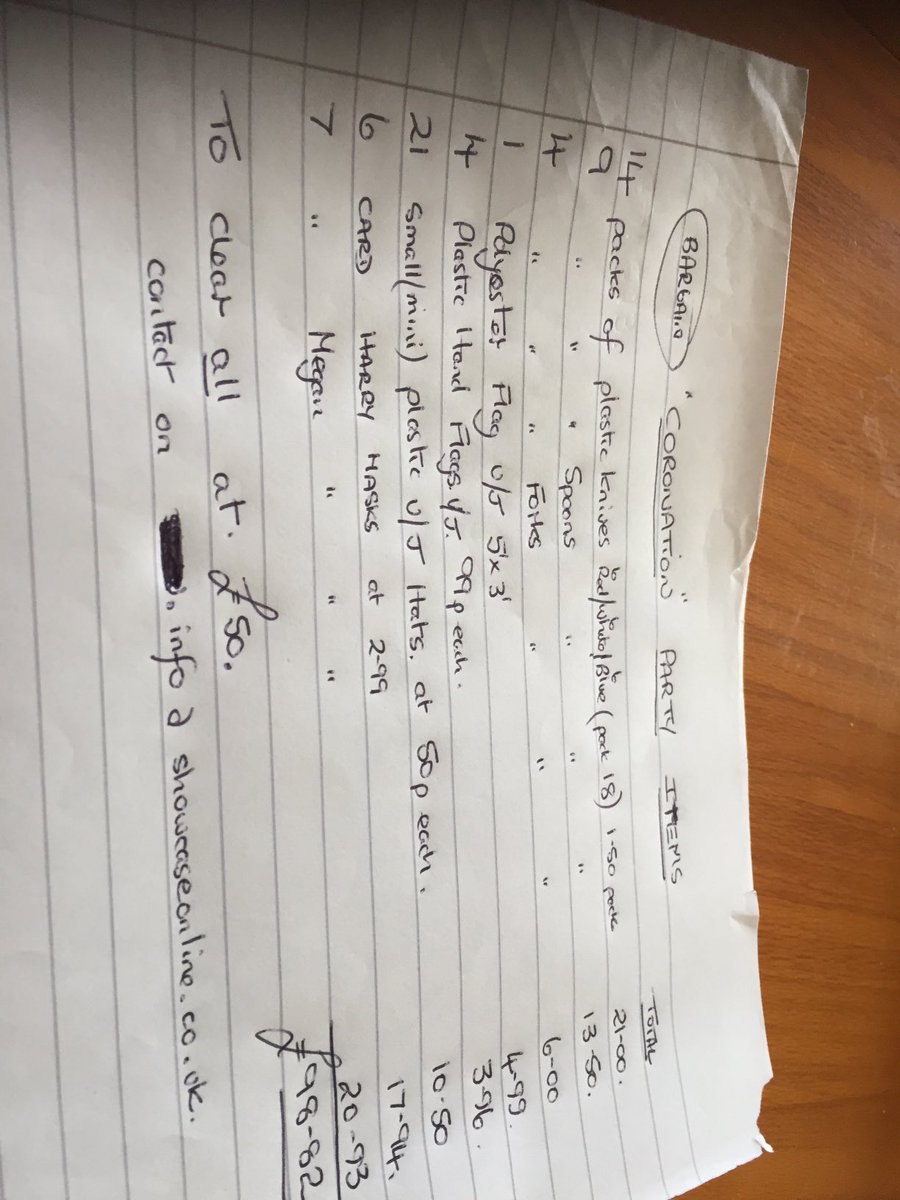 BARGAIN "CORONATION" PARTY ITEMS
TOTAL
14 packs of plastic knives 6 Red/6 white/6 Blue (pack 18) 1-50 pack 21-00.
9 " " " Spoons " " " 13-50.
4 " " " Forks " " " 6-00
1 Polyester Flag U/J 5'x3' 4-99.
4 Plastic Hand Flags U/J. 99p each. 3-96.
21 small/(mini) plastic U/J Hats. at 50p each. 10-50
6 CARD HARRY MASKS at 2-99 17-94.
7 " Megan " " " 20-93
£98-82
To clear all at. £50.
contact on . info @ showcaseonline.co.uk.